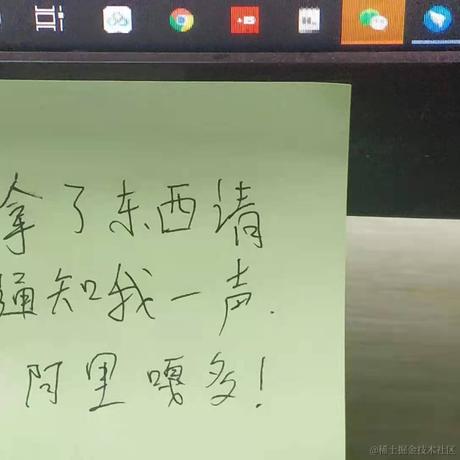 拿了东西请
通知我一声.
阿里嘎多!
@稀土掘金技术社区